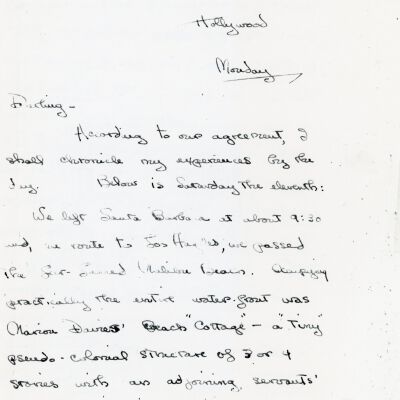 Hollywood
Monday
Darling -
According to our agreement, I
shall chronicle my experiences by the
day. Below is Saturday the eleventh:
We left Santa Barbara at about 9:30
and, en route to Los we passed
the far-famed Malibu Beach. Occupying
practically the entire water-front was
Marion Davies' Beach "Cottage" - a "Tiny"
pseudo-colonial structure of 3 or 4
stories with an adjoining servants'